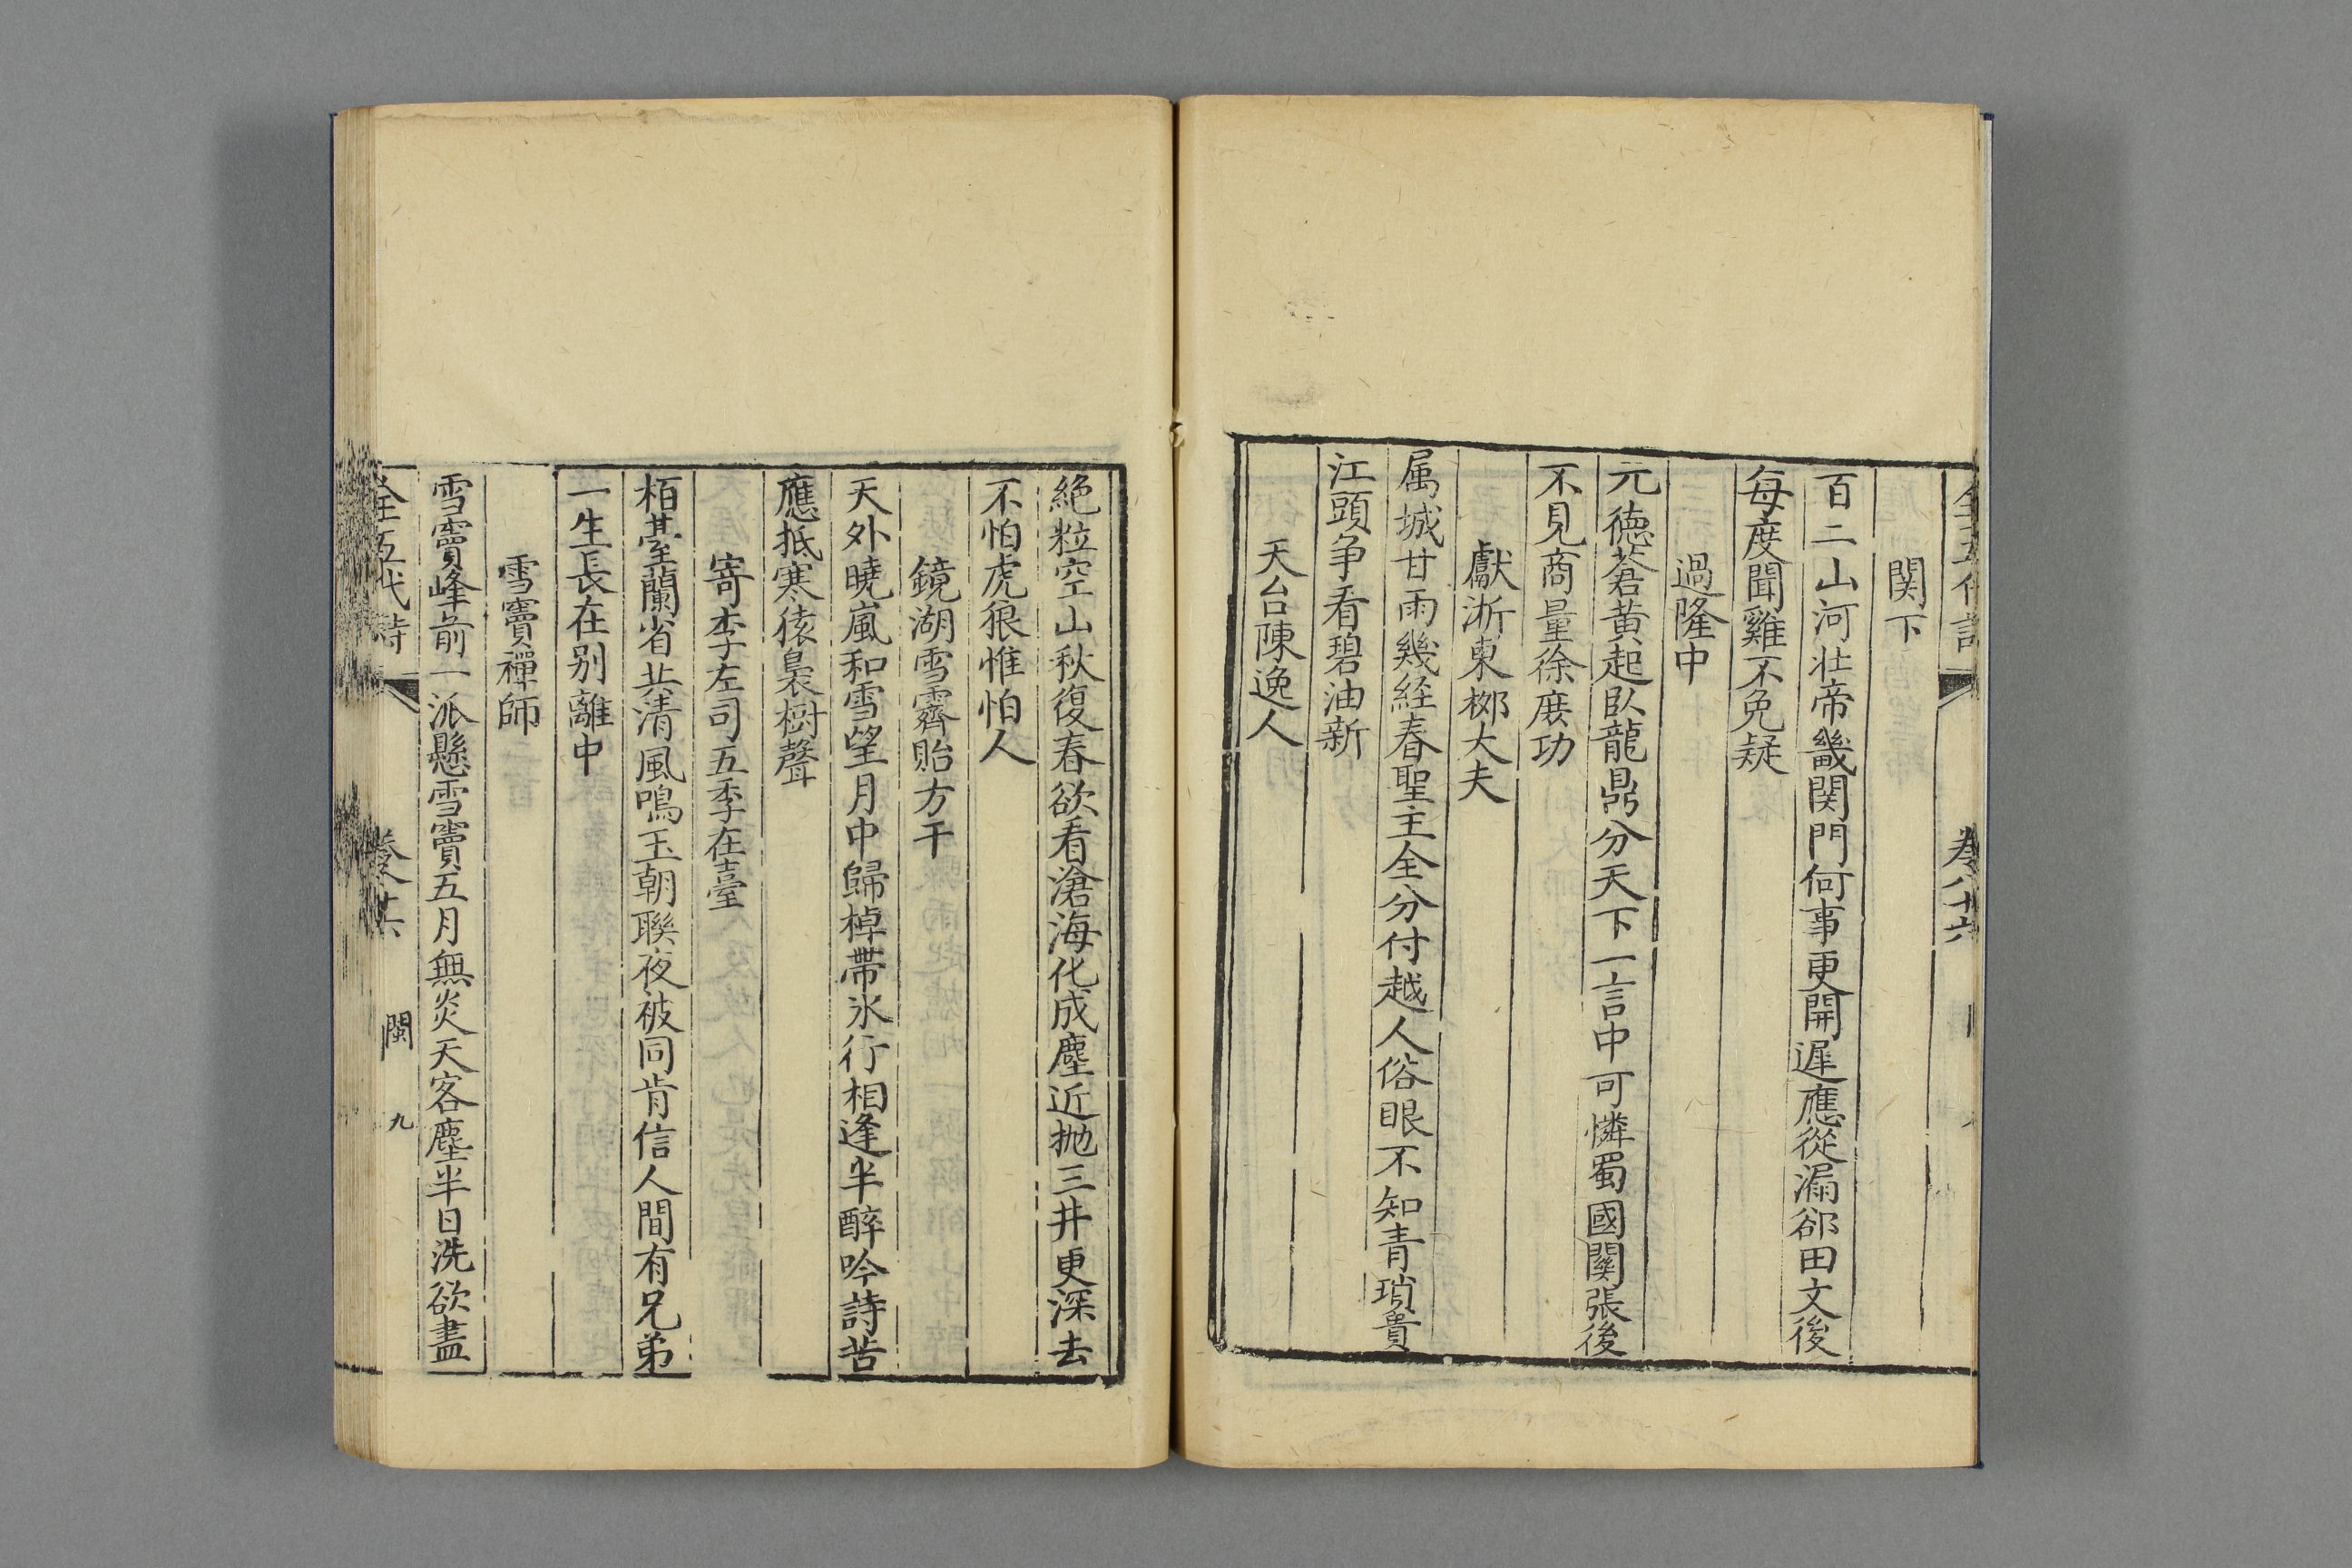 全五代詩 卷八十六
関下
百二山河壮帝畿関門何事更開遲應從漏郤田文後
每度聞雞不免疑
過隆中
元德蒼黃起臥龍鼎分天下一言中可憐蜀國関張後
不見商量徐庶功
獻浙東栁大夫
属城甘雨幾経春聖主全分付越人俗眼不知青瑣貴
江頭争看碧油新
天台陳逸人
絕粒空山秋復春欲看滄海化成塵近抛三井更深去
不怕虎狼惟怕人
鏡湖雪霽貽方干
天外曉嵐和雪望月中歸棹帶氷行相逢半醉吟詩苦
應抵寒猿裊樹聲
寄李左司五李在臺
栢䑓蘭省共清風鳴玉朝聯夜被同肯信人間有兄弟
一生長在别離中
雪竇禪師
雪竇峰前一派懸雪竇五月無炎天客塵半日洗欲盡
全五代詩 閩 九